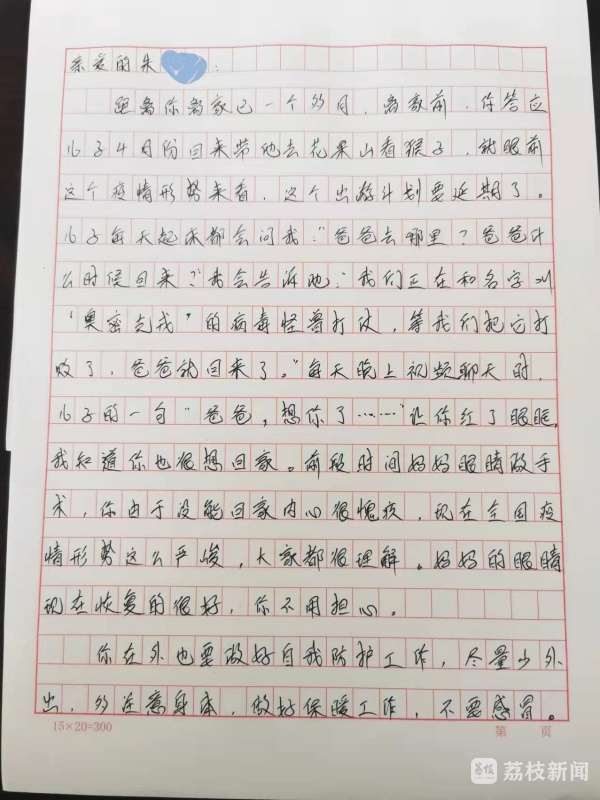 亲爱的朱:
距离你离家已一个多月,离家前,你答应
儿子4月份回来带他去花果山看猴子,就眼前
这个疫情形势来看,这个出游计划要延期了。
儿子每天起床都会问我:“爸爸去哪里?爸爸什
么时候回来?”我会告诉他:“我们正在和名字叫
“奥密克戎”的病毒怪兽打仗,等我们把它打
败了,爸爸就回来了。”每天晚上视频聊天时,
儿子的一句“爸爸,想你了……”让你红了眼眶,
我知道你也很想回家。前段时间妈妈眼睛做手
术,你由于没能回家内心很愧疚,现在全国疫
情形势这么严峻,大家都很理解。妈妈的眼睛
现在恢复的很好,你不用担心。
你在外也要做好自我防护工作,尽量少外
出,多注意身体,做好保暖工作,不要感冒。
15×20=300 第 页
荔枝新闻